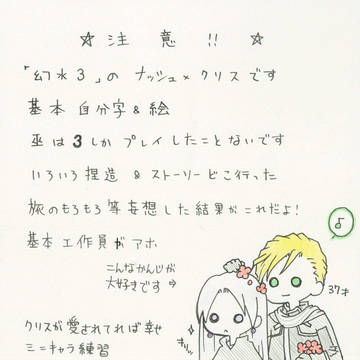 ☆ 注意!! ☆
「幻水3」の ナッシュ×クリスです
基本 自分字&絵
巫は3しかプレイしたことないです
いろいろ捏造 & ストーリーどこ行った
旅のもろもろ等妄想した結果がこれだよ!
基本工作員がアホ
こんなかんじが
大好きです⇒
クリスが愛されてれば幸せ
ミニキャラ練習
♪
37才
ギリッ